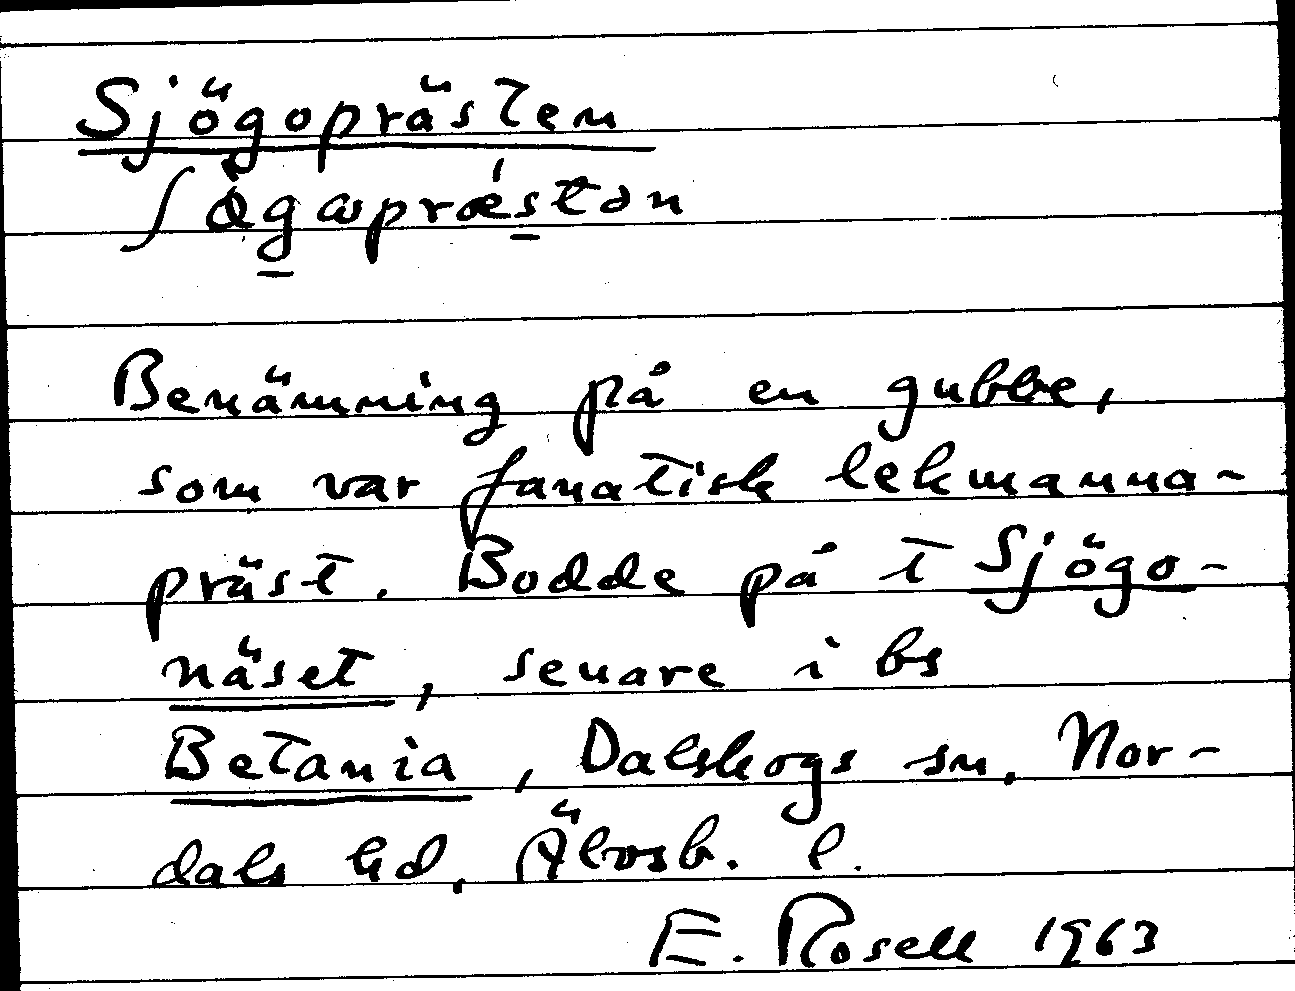 Sjögoprästen
ʃø̀gωprǽstən
Benämning på en gubbe,
som var fanatisk lekmanna-
präst. Bodde på t Sjögo-
näset, senare i bs
Betania, Dalskogs sn. Nor-
dals hd. Älvsb. l.
E. Rosell 1963